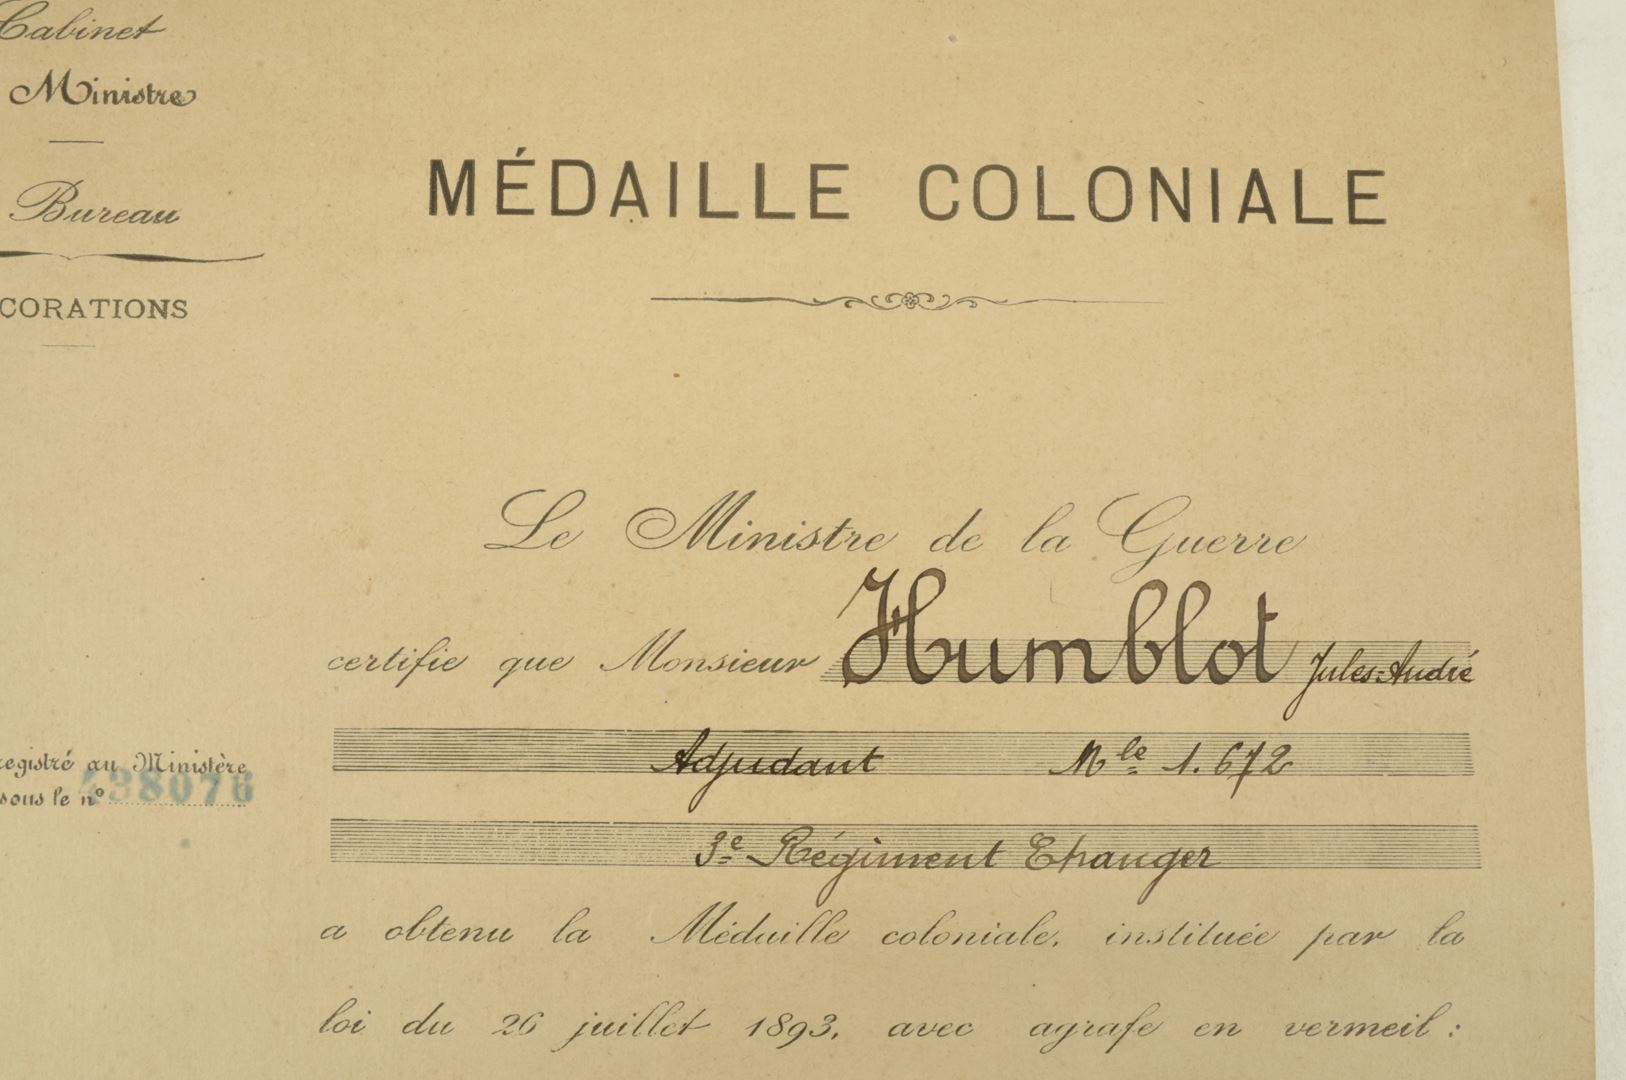 Cabinet
Ministre
Bureau
CORATIONS
MÉDAILLE COLONIALE
Le Ministre de la Guerre
certifie que Monsieur Humblot Jules-André
Adjudant Mle 1.672
3e Régiment Etranger
registré au Ministère
sous le nº 438076
a obtenu la Médaille coloniale, instituée par la
loi du 26 juillet 1893, avec agrafe en vermeil :